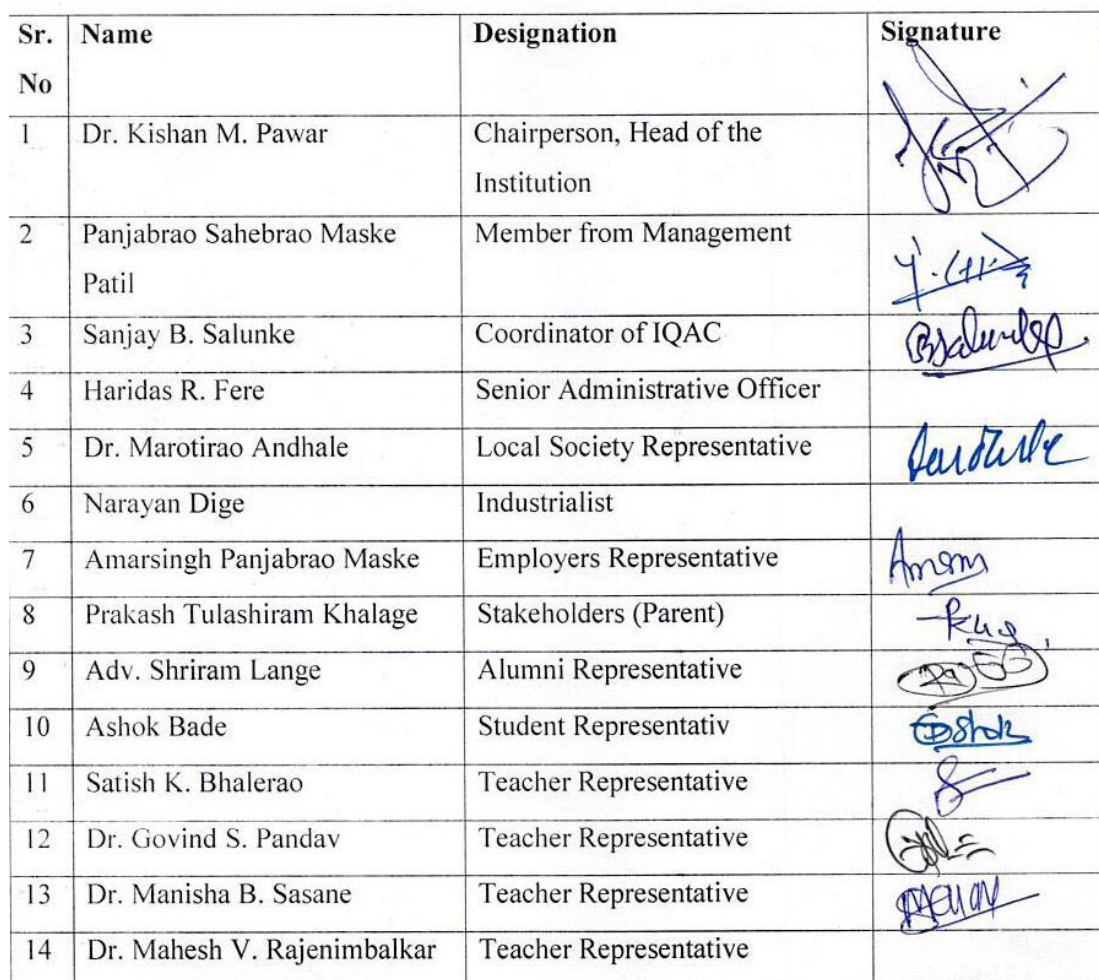 Sr. No Name Designation Signature
1 Dr. Kishan M. Pawar Chairperson, Head of the
Institution
2 Panjabrao Sahebrao Maske Member from Management
Patil
3 Sanjay B. Salunke Coordinator of IQAC
4 Haridas R. Fere Senior Administrative Officer
5 Dr. Marotirao Andhale Local Society Representative
6 Narayan Dige Industrialist
7 Amarsingh Panjabrao Maske Employers Representative
8 Prakash Tulashiram Khalage Stakeholders (Parent)
9 Adv. Shriram Lange Alumni Representative
10 Ashok Bade Student Representativ
11 Satish K. Bhalerao Teacher Representative
12 Dr. Govind S. Pandav Teacher Representative
13 Dr. Manisha B. Sasane Teacher Representative
14 Dr. Mahesh V. Rajenimbalkar Teacher Representative